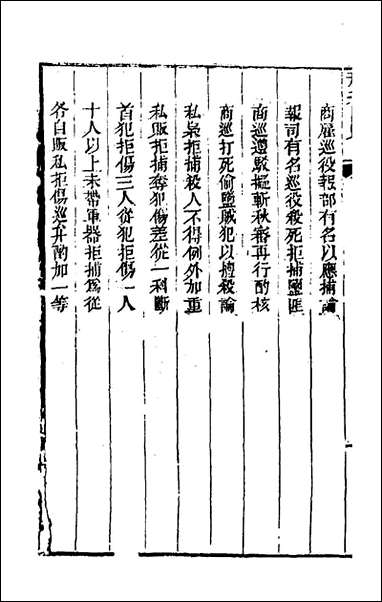 商雇巡役報部有名以應捕論
報司有名巡役殺死拒捕鹽匪
商巡遵駁擬斬秋審再行酌核
商巡打死偷鹽賊犯以擅殺論
私梟拒捕殺人不得例外加重
私販拒捕奪犯傷差從一科斷
首犯拒傷三人從犯拒傷一人
十人以上未帶軍器拒捕為從
各自販私拒傷巡弁酌加一等